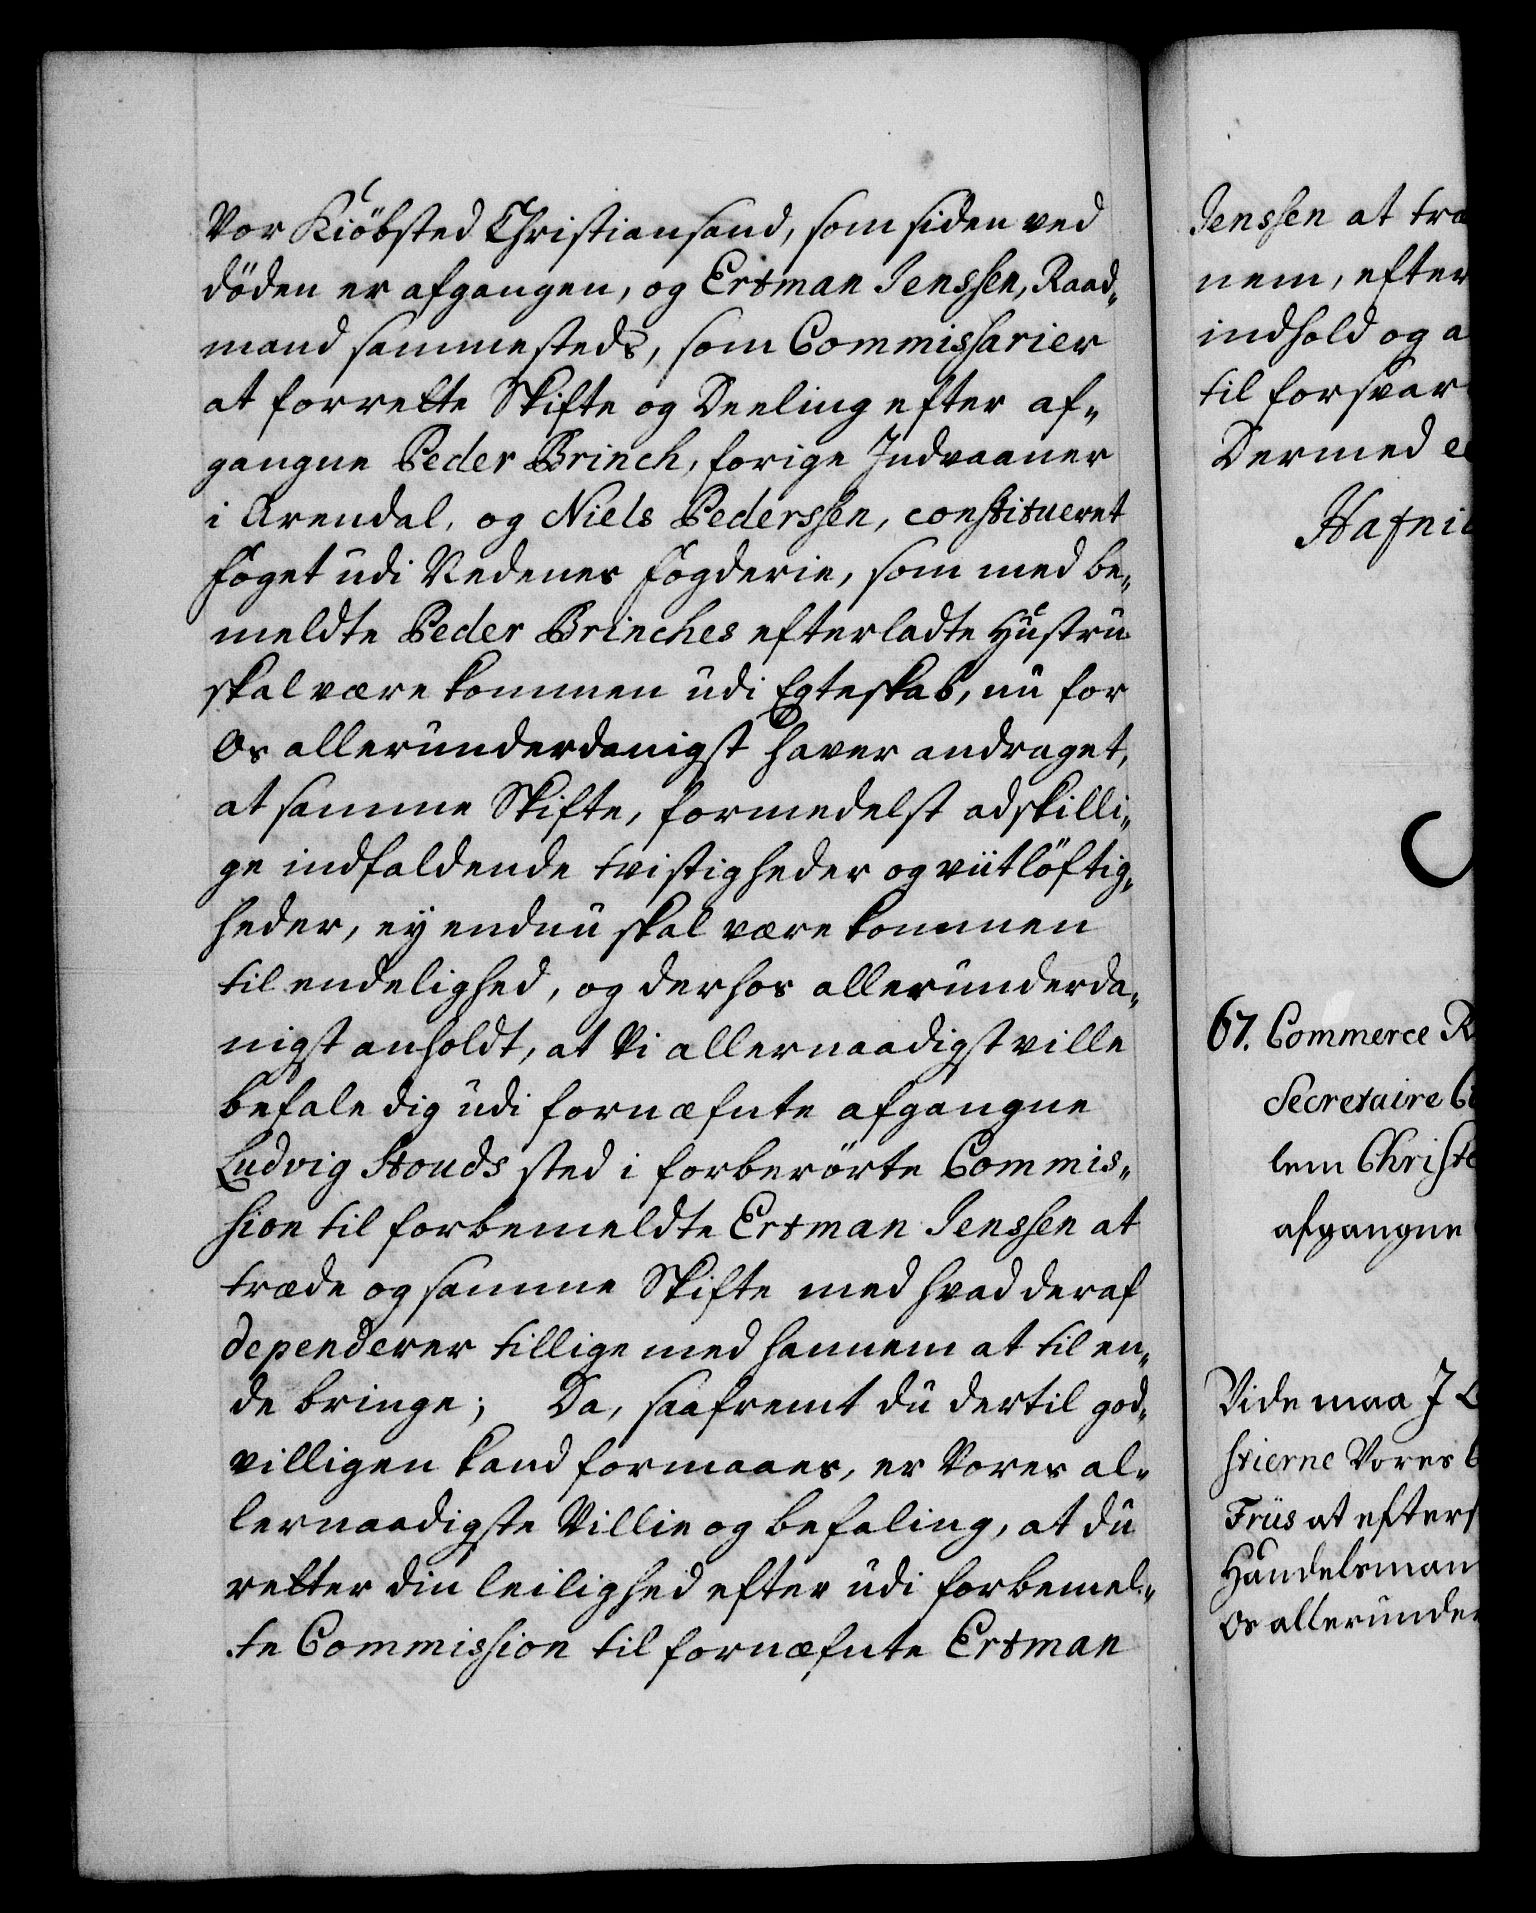 Vor Kiöbsted Christiansand, som siden ved
döden er afgangen, og Ertman Jenssen, Raad„
mand sammesteds, som Commissarier
at forrette Skifte og Deeling efter af„
gangne Peder Brinch, forige Indvaaner
i Arendal, og Niels Pederssen, constitueret
Foget udi Nedenes Fogderie, som med be„
meldte Peder Brinches efterladte Hustru
skal være kommen udi Egteskab, nu for
Os allerunderdanigst haver andraget,
at samme Skifte, formedelst adskilli„
ge indfaldende tvistigheder og viitlöftig„
heder, ey endnu skal være kommen
til endelighed, og derhos allerunderda„
nigst anholdt, at Vi allernaadigst ville
befale dig udi fornæfnte afgangne
Ludvig Stouds sted i forberörte Commis„
sion til forbemeldte Ertman Jenssen at
træde og samme Skifte med hvad deraf
dependerer tillige med hannem at til en„
de bringe; Da, saafremt du dertil god„
villigen kand formaaes, er Vores al„
lernaadigste Villie og befaling, at du
retter din leilighed efter udi forbemel„
te Commission til fornæfnte Ertman
Jenssen at træ
nem, efter
indhold og a
til forsvar
Dermed
Hafni
67. Commerce R
Secretaire
lem Christ
afgangne
Vide maa I
stierne Vores
Friis at efter
Handelsman
Os allerunder